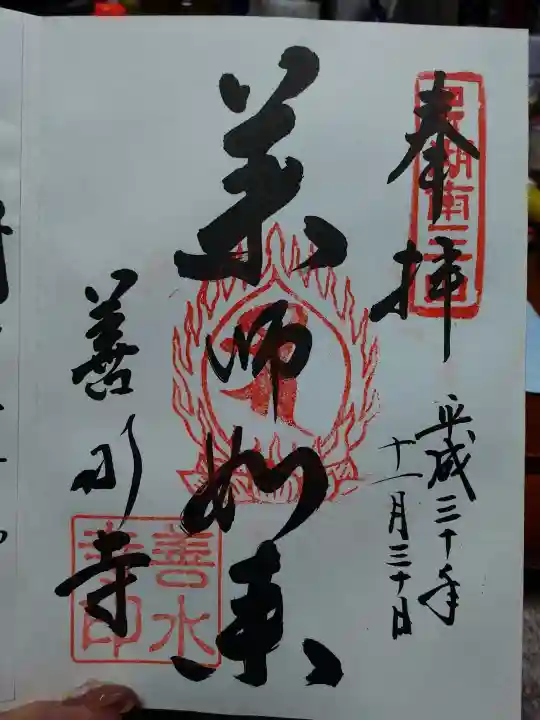 奉拝
平成三十年
十一月三十日
薬師如来
善水寺
善水
寺印
湖南三山